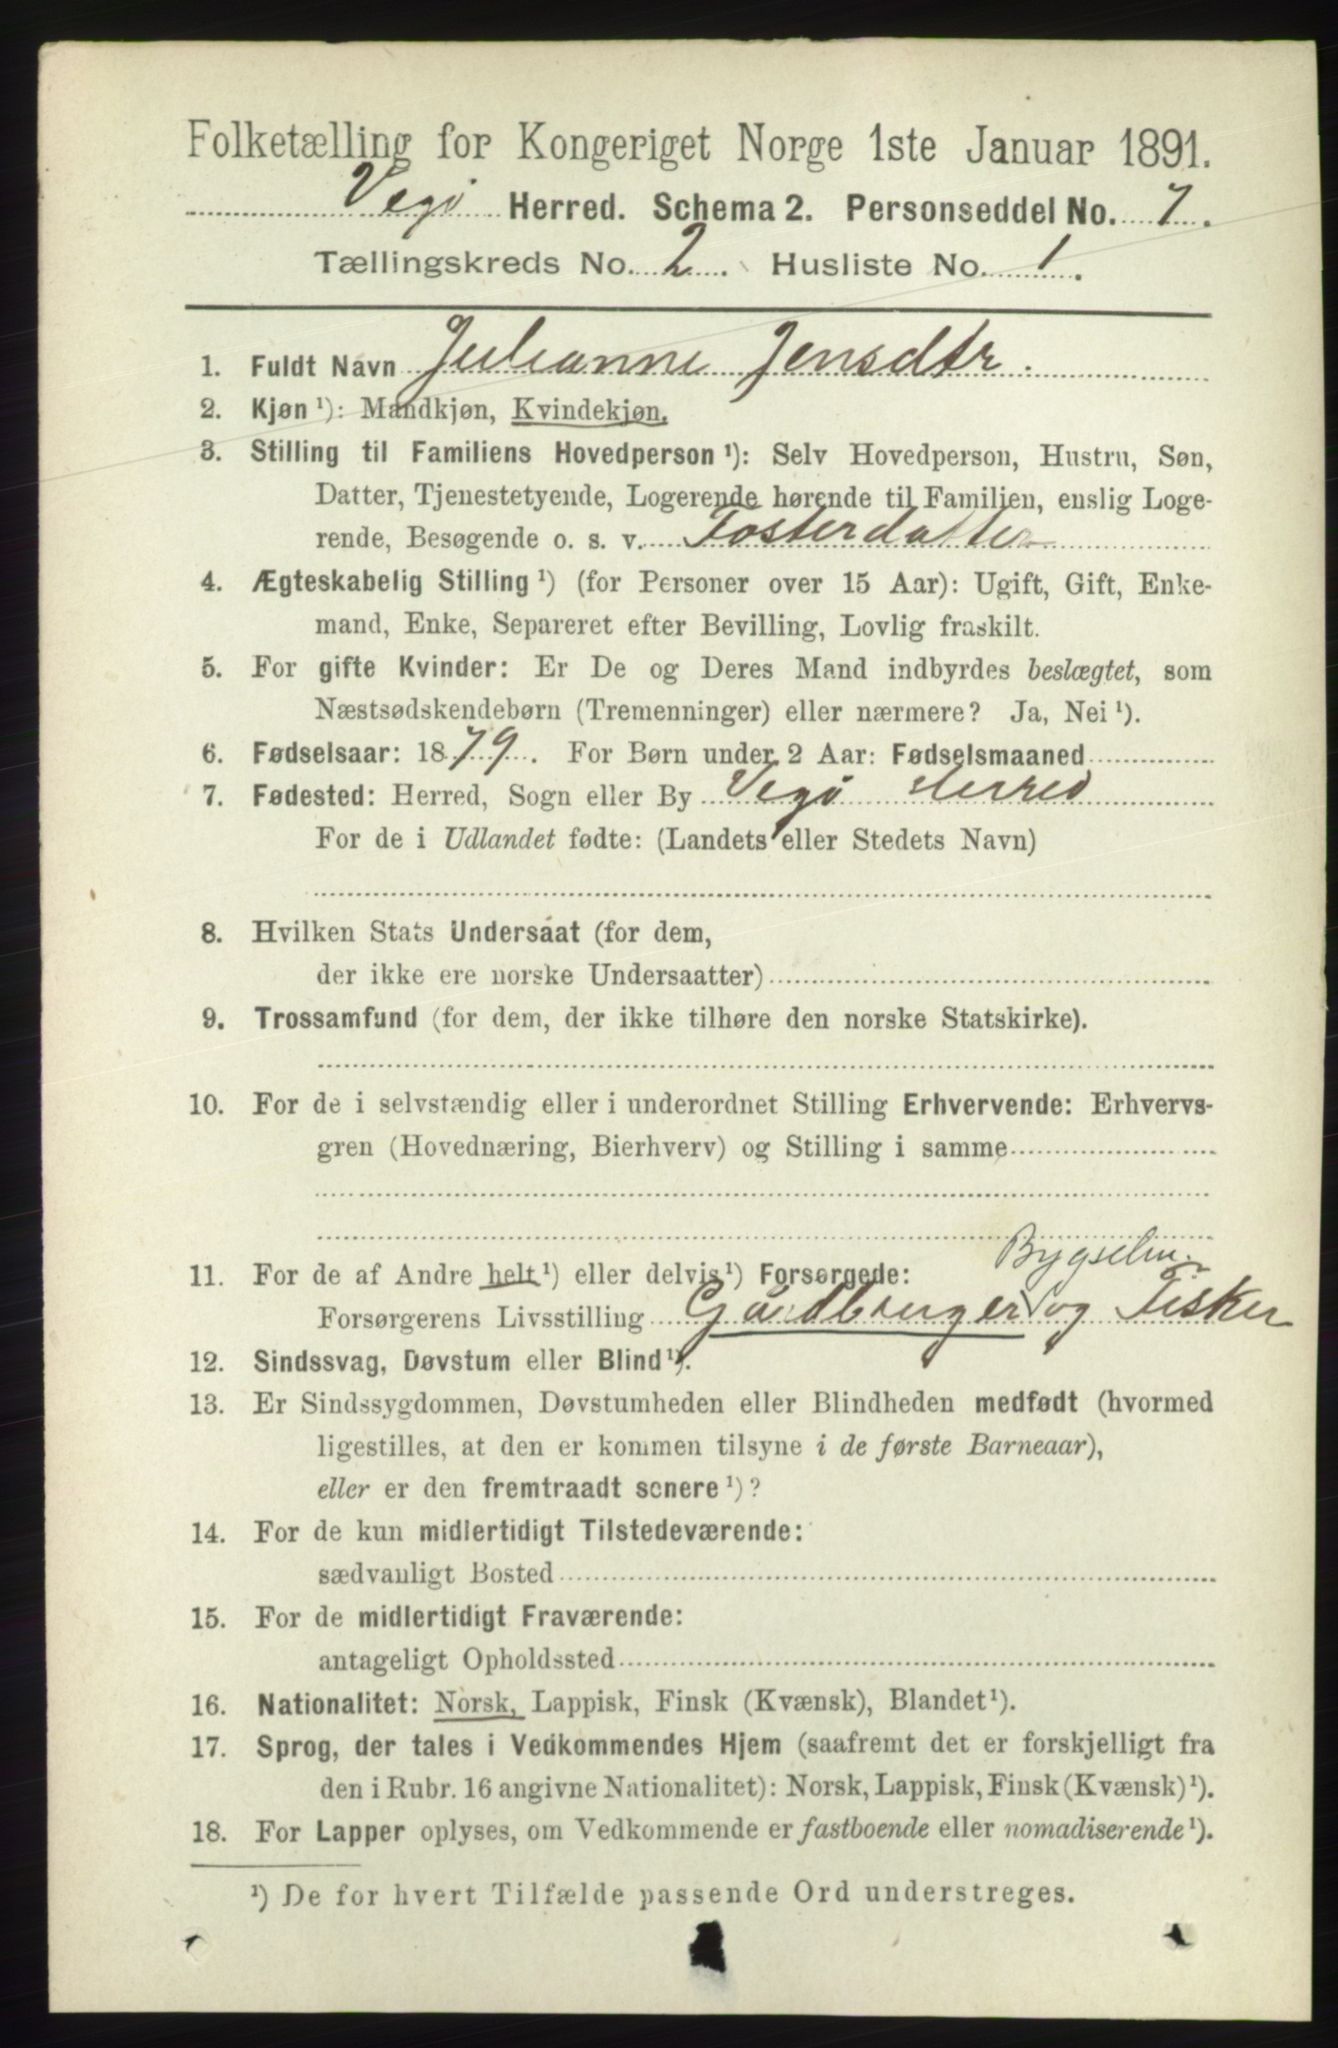 Folketælling for Kongeriget Norge 1ste Januar 1891.
Vegø Herred. Schema 2. Personseddel No. 7.
Tællingskreds No. 2. Husliste No. 1.
1. Fuldt Navn Julianne Jensdtr.
2. Kjøn ¹): Mandkjøn, Kvindekjøn.
3. Stilling til Familiens Hovedperson ¹): Selv Hovedperson, Hustru, Søn,
Datter, Tjenestetyende, Logerende hørende til Familien, enslig Loge-
rende, Besøgende o. s. v. Fosterdatter
4. Ægteskabelig Stilling ¹) (for Personer over 15 Aar): Ugift, Gift, Enke-
mand, Enke, Separeret efter Bevilling, Lovlig fraskilt.
5. For gifte Kvinder: Er De og Deres Mand indbyrdes beslægtet, som
Næstsødskendebørn (Tremenninger) eller nærmere? Ja, Nei ¹).
6. Fødselsaar: 1879. For Børn under 2 Aar: Fødselsmaaned
7. Fødested: Herred, Sogn eller By Vegø Herred
For de i Udlandet fødte: (Landets eller Stedets Navn)
8. Hvilken Stats Undersaat (for dem,
der ikke ere norske Undersaatter)
9. Trossamfund (for dem, der ikke tilhøre den norske Statskirke).
10. For de i selvstændig eller i underordnet Stilling Erhvervende: Erhvervs-
gren (Hovednæring, Bierhverv) og Stilling i samme
Bygselm.
11. For de af Andre helt ¹) eller delvis ¹) Forsørgede:
Forsørgerens Livsstilling Gårdbruger og Fisker
12. Sindssvag, Døvstum eller Blind ¹).
13. Er Sindssygdommen, Døvstumheden eller Blindheden medfødt (hvormed
ligestilles, at den er kommen tilsyne i de første Barneaar),
eller er den fremtraadt senere ¹)?
14. For de kun midlertidigt Tilstedeværende:
sædvanligt Bosted
15. For de midlertidigt Fraværende:
antageligt Opholdssted
16. Nationalitet: Norsk, Lappisk, Finsk (Kvænsk), Blandet ¹).
17. Sprog, der tales i Vedkommendes Hjem (saafremt det er forskjelligt fra
den i Rubr. 16 angivne Nationalitet): Norsk, Lappisk, Finsk (Kvænsk) ¹).
18. For Lapper oplyses, om Vedkommende er fastboende eller nomadiserende ¹).
¹) De for hvert Tilfælde passende Ord understreges.